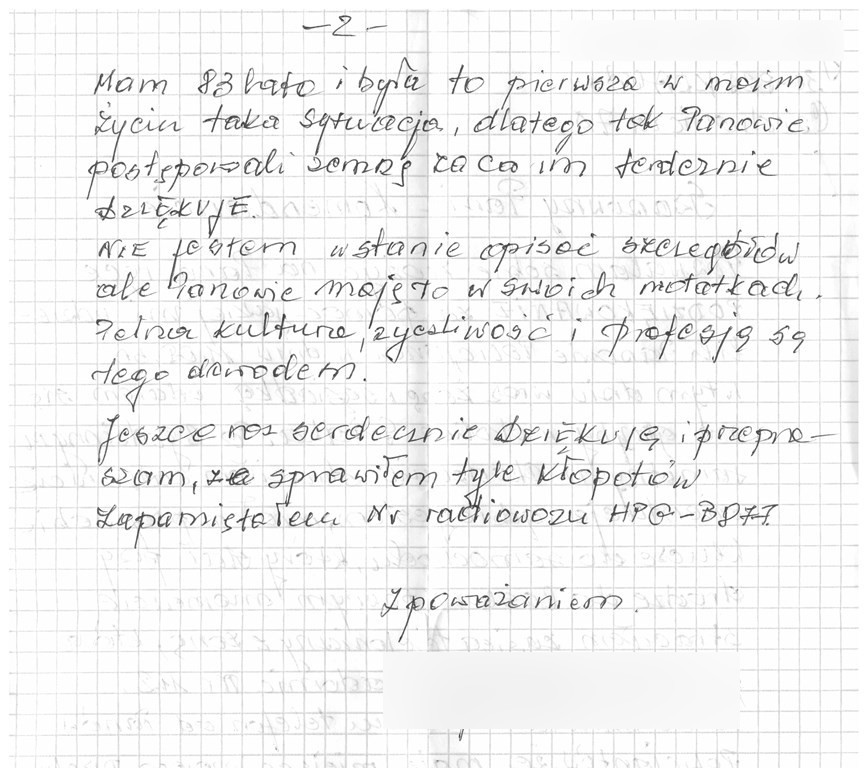 -2-
Mam 83 lata i była to pierwsza w moim
życiu taka sytuacja, dlatego tak Panowie
postępowali zemną za co im serdecznie
DZIĘKUJĘ.
NIE jestem wstanie opisać szczegółów
ale Panowie mają to w swoich notatkach.
Pełna kultura, życzliwość i profesją są
tego dowodem.
Jeszcze raz serdecznie DZIĘKUJĘ i przepra-
szam, że sprawiłem tyle kłopotów
Zapamiętałem Nr radiowozu HPG-B877.
Z poważaniem.